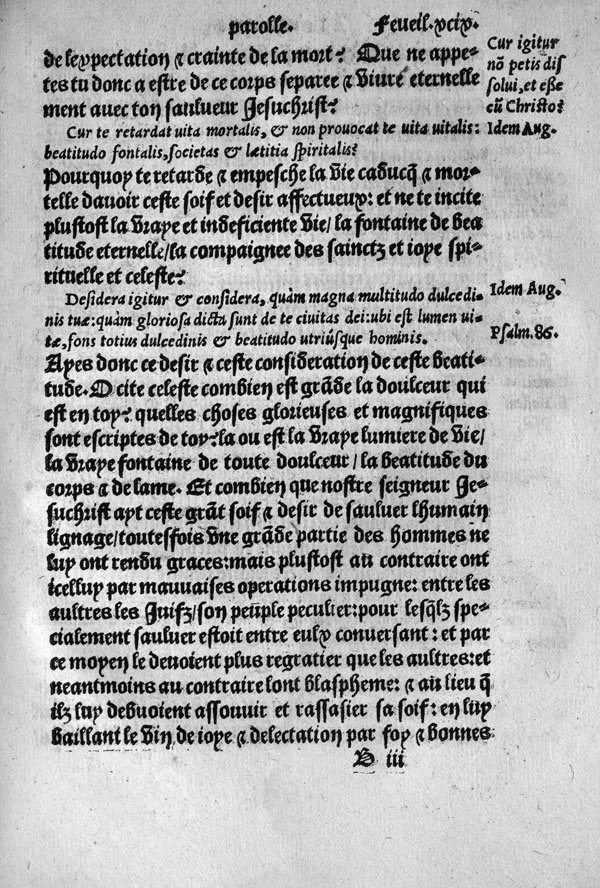 parolle. Feueil.xcix.
de lexpectation & crainte de la mort? Que ne appe-
tes tu donc a estre de ce corps separee & viure eternelle
ment auec ton saulueur Jesuchrist?
Cur igitur
nō petis dis
solui, et esse
cū Christo?
Cur te retardat uita mortalis, & non prouocat te uita uitalis:
beatitudo fontalis, societas & lætitia spiritalis?
Idem Aug.
Pourquoy te retarde & empesche la vie caducq̄ & mor-
telle dauoir ceste soif et desir affectueux: et ne te incite
plustost la vraye et indeficiente vie/ la fontaine de bea
titude eternelle/ la compaignee des sainctz et ioye spi-
rituelle et celeste?
Desidera igitur & considera, quàm magna multitudo dulcedi-
nis tuæ: quàm gloriosa dicta sunt de te ciuitas dei: ubi est lumen ui-
tæ, fons totius dulcedinis & beatitudo utriúsque hominis.
Idem Aug.
Psalm.86.
Ayes donc ce desir & ceste consideration de ceste beati-
tude. O cite celeste combien est grāde la doulceur qui
est en toy? quelles choses glorieuses et magnifiques
sont escriptes de toy? la ou est la vraye lumiere de vie/
la vraye fontaine de toute doulceur/ la beatitude du
corps & de lame. Et combien que nostre seigneur Je-
suchrist ayt ceste grāt soif & desir de sauluer lhumain
lignage/ toutesfois vne grāde partie des hommes ne
luy ont rendu graces: mais plustost au contraire ont
icelluy par mauuaises operations impugne: entre les
aultres les Juifz/ son peuple peculier: pour lesq̄lz spe-
cialement sauluer estoit entre eulx conuersant: et par
ce moyen le deuoient plus regratier que les aultres: et
neantmoins au contraire lont blaspheme: & au lieu q̄
ilz luy debuoient assouuir et rassasier sa soif: en luy
baillant le vin de ioye & delectation par foy & bonnes
iii